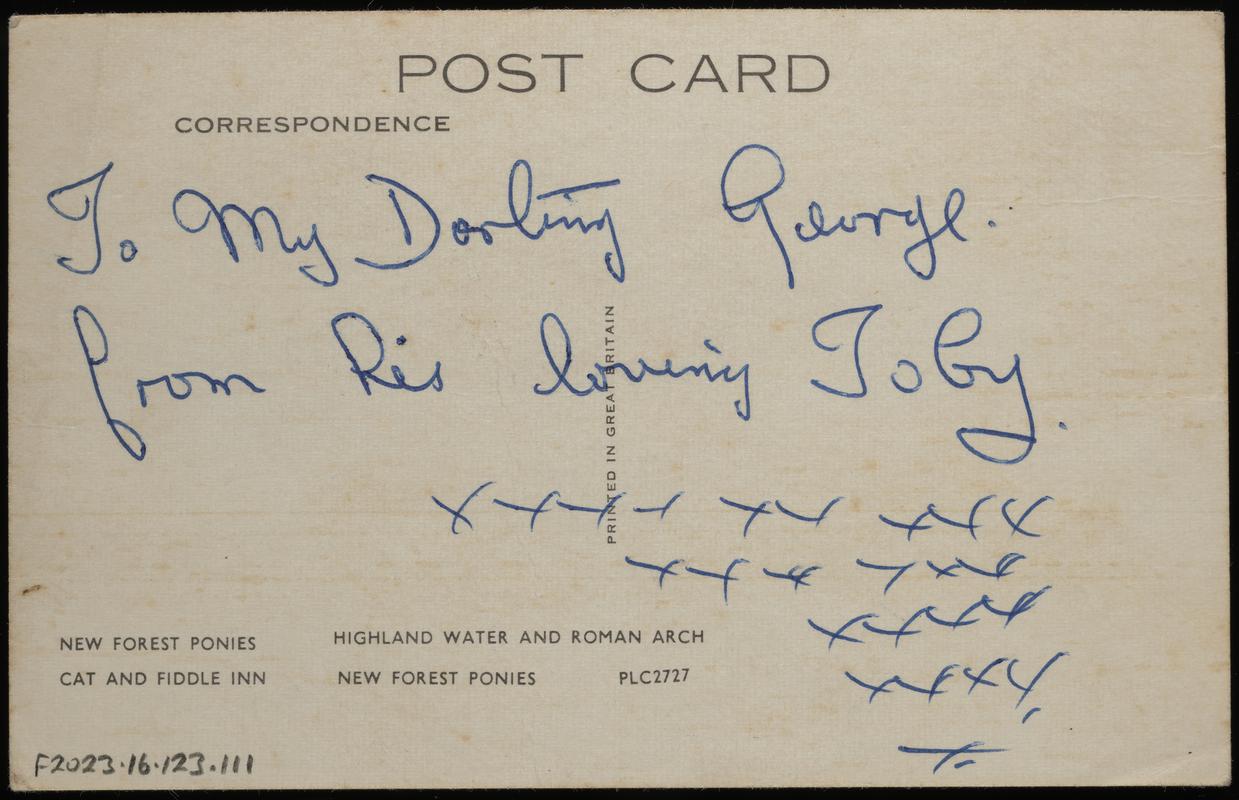 POST CARD
CORRESPONDENCE
To My Darling George.
from his loving Toby.
PRINTED IN GREAT BRITAIN
xxxx xx xxx
xxx xxx
xxxx
xxxx
x
NEW FOREST PONIES HIGHLAND WATER AND ROMAN ARCH
CAT AND FIDDLE INN NEW FOREST PONIES PLC2727
F2023.16.123.111